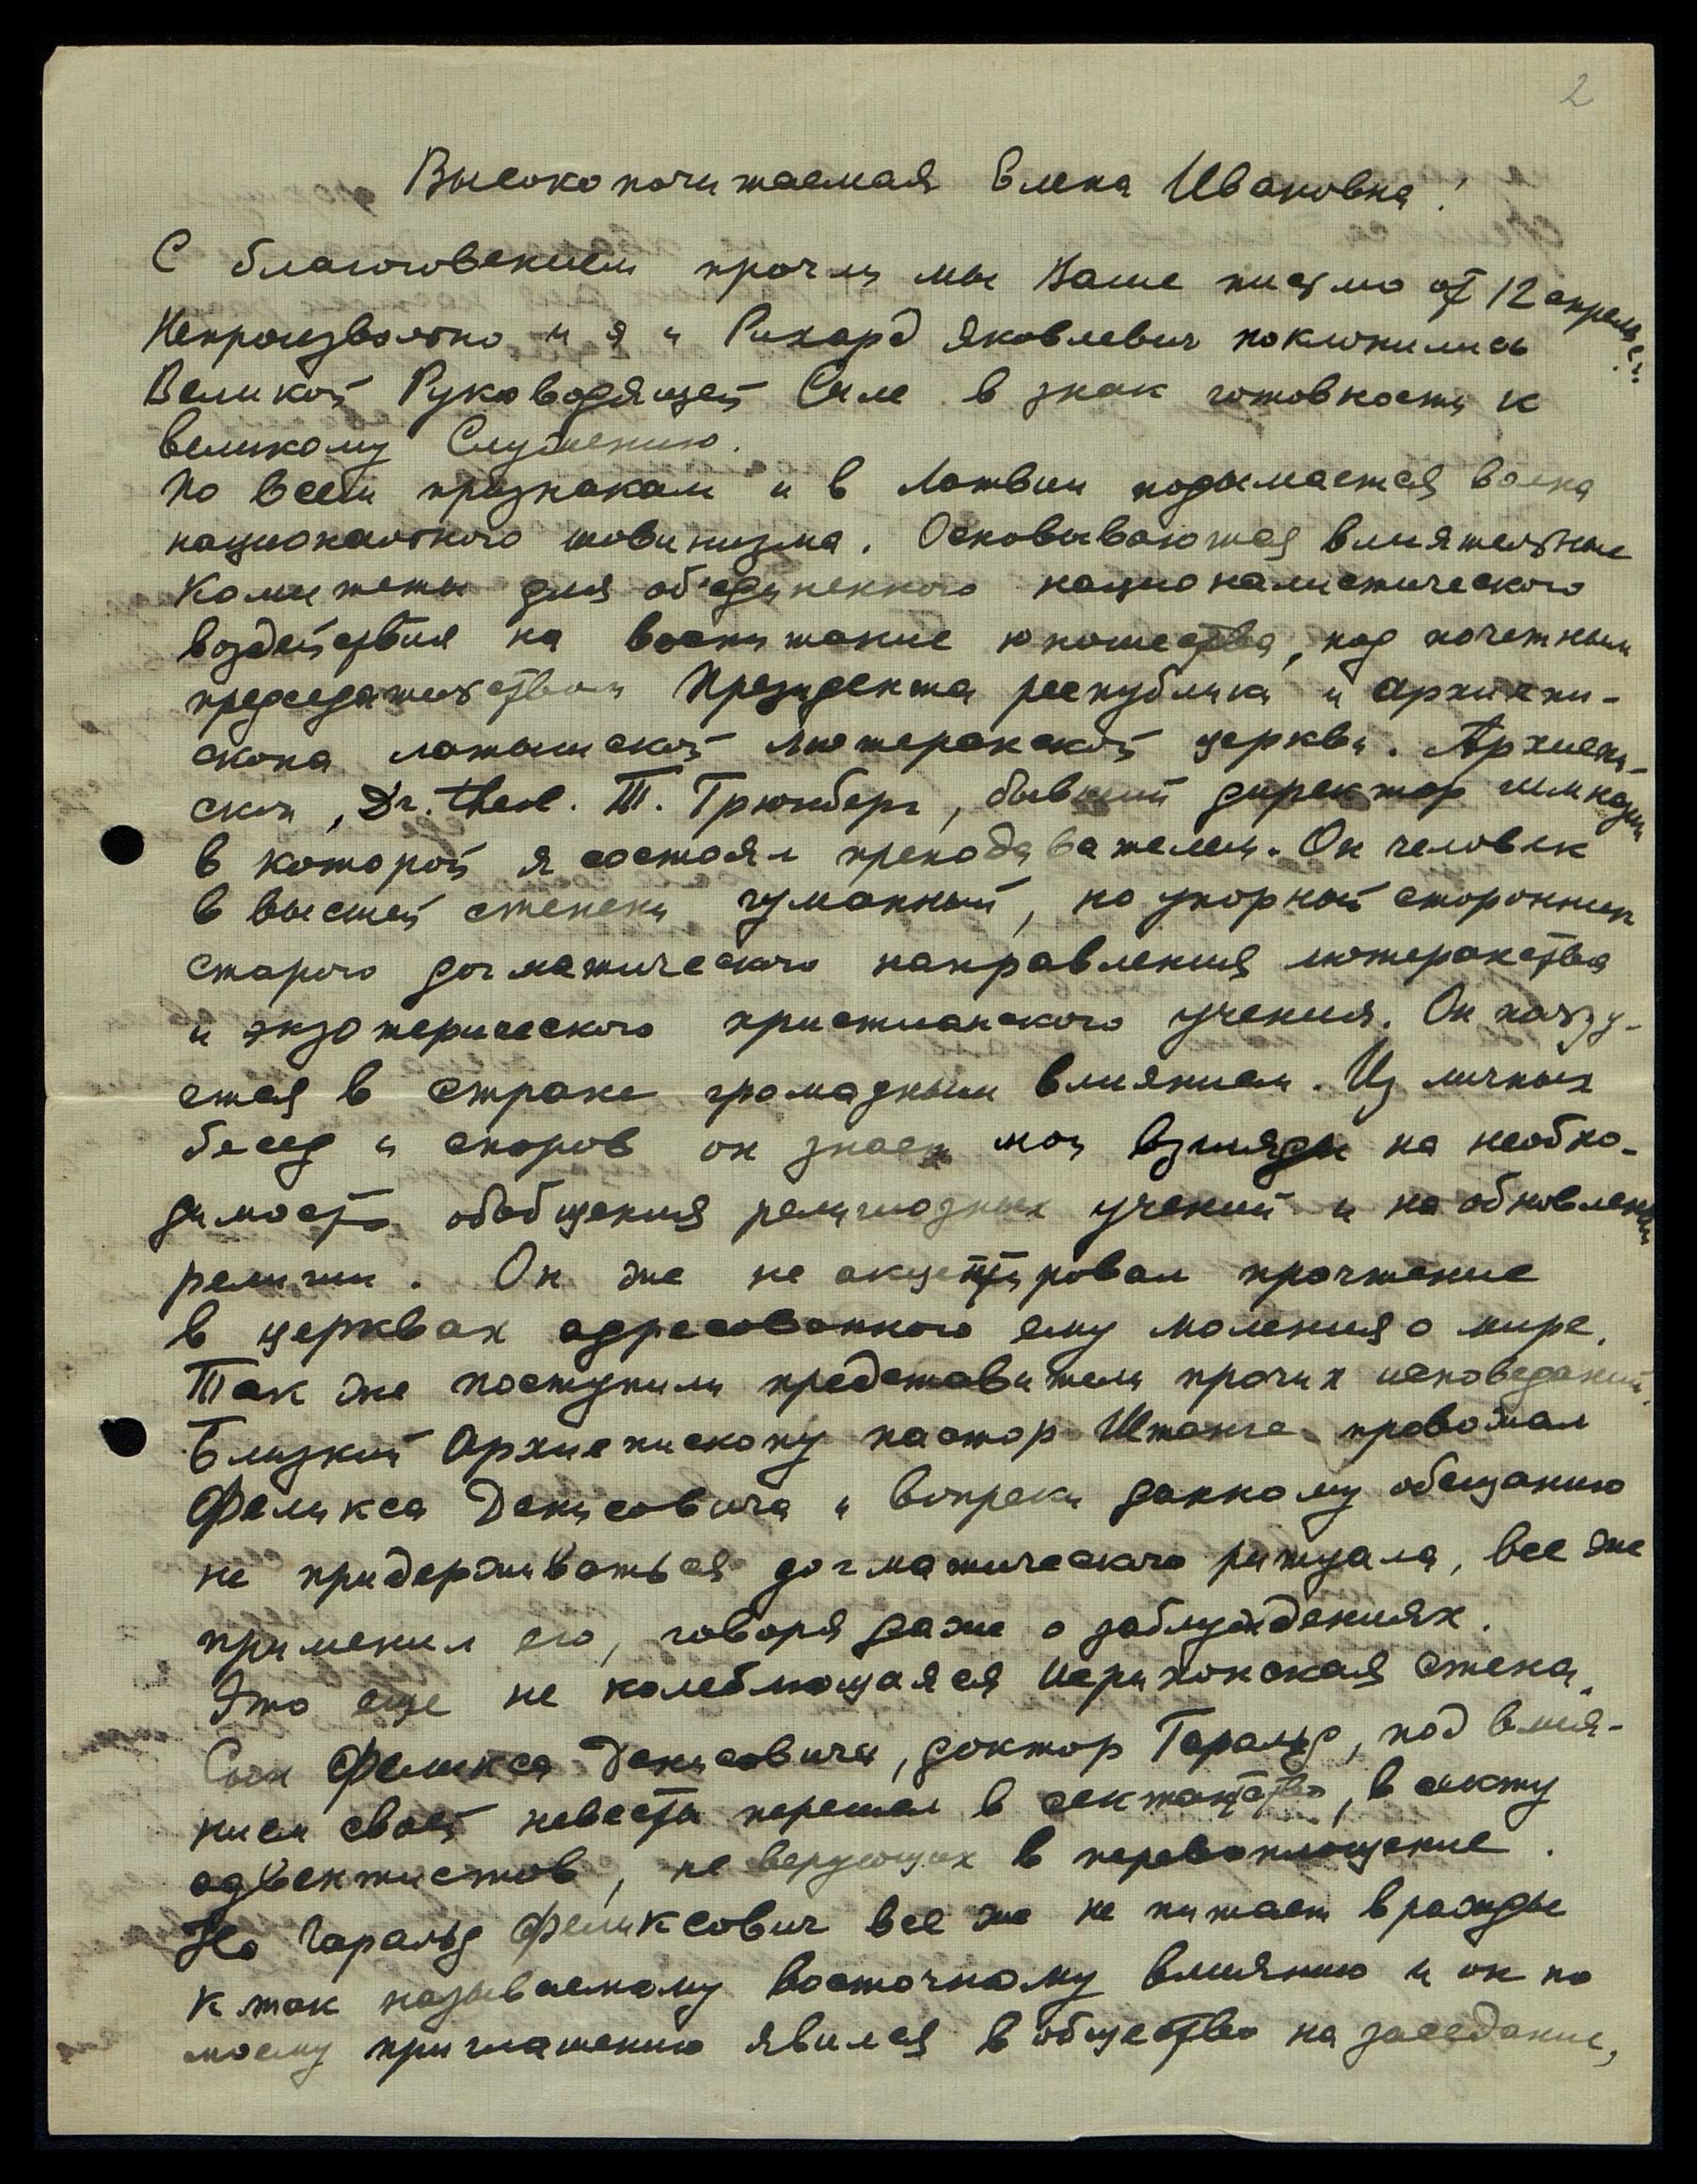 2
Высокопочитаемая Елена Ивановна!
С благоговением прочли мы Ваше письмо от 12 апреля с.г.
Непроизвольно и я и Рихард Яковлевич поклонились
Великой Руководящей Силе в знак готовности к
великому Служению.
По всем признакам и в Латвии подымается волна
национального шовинизма. Основываются влиятельные
комитеты для об'единенного националистического
воздействия на воспитание юношества, под почетным
председательством Президента республики и архиепи-
скопа латышской лютеранской церкви. Архиепи-
скоп, Dr. theol. Т. Грюнберг, бывший директор гимназии
в которой я состоял преподавателем. Он человек
в высшей степени гуманный, но упорный сторонник
старого догматического направления лютеранства
и экзотерического христианского учения. Он пользу-
ется в стране громадным влиянием. Из личных
бесед и споров он знает мои взгляды на необхо-
димость обобщения религиозных учений и на обновление
религии. Он же не акцептировал прочтение
в церквах адресованного ему моления о мире.
Так же поступили представители прочих исповеданий.
Близкий Архиепископу пастор Штанге провожал
Феликса Денисовича и вопреки данному обещанию
не придерживаться догматического ритуала, все же
применил его, говоря даже о заблуждениях.
Это еще не колеблющаяся Иерихонская стена.
Сын Феликса Денисовича, доктор Гаральд, под влия-
нием своей невесты перешел в сектантство, в секту
адвентистов, не верующих в перевоплощение.
Но Гаральд Феликсович все же не питает вражды
к так называемому восточному влиянию и он по
моему приглашению явился в общество на заседание,